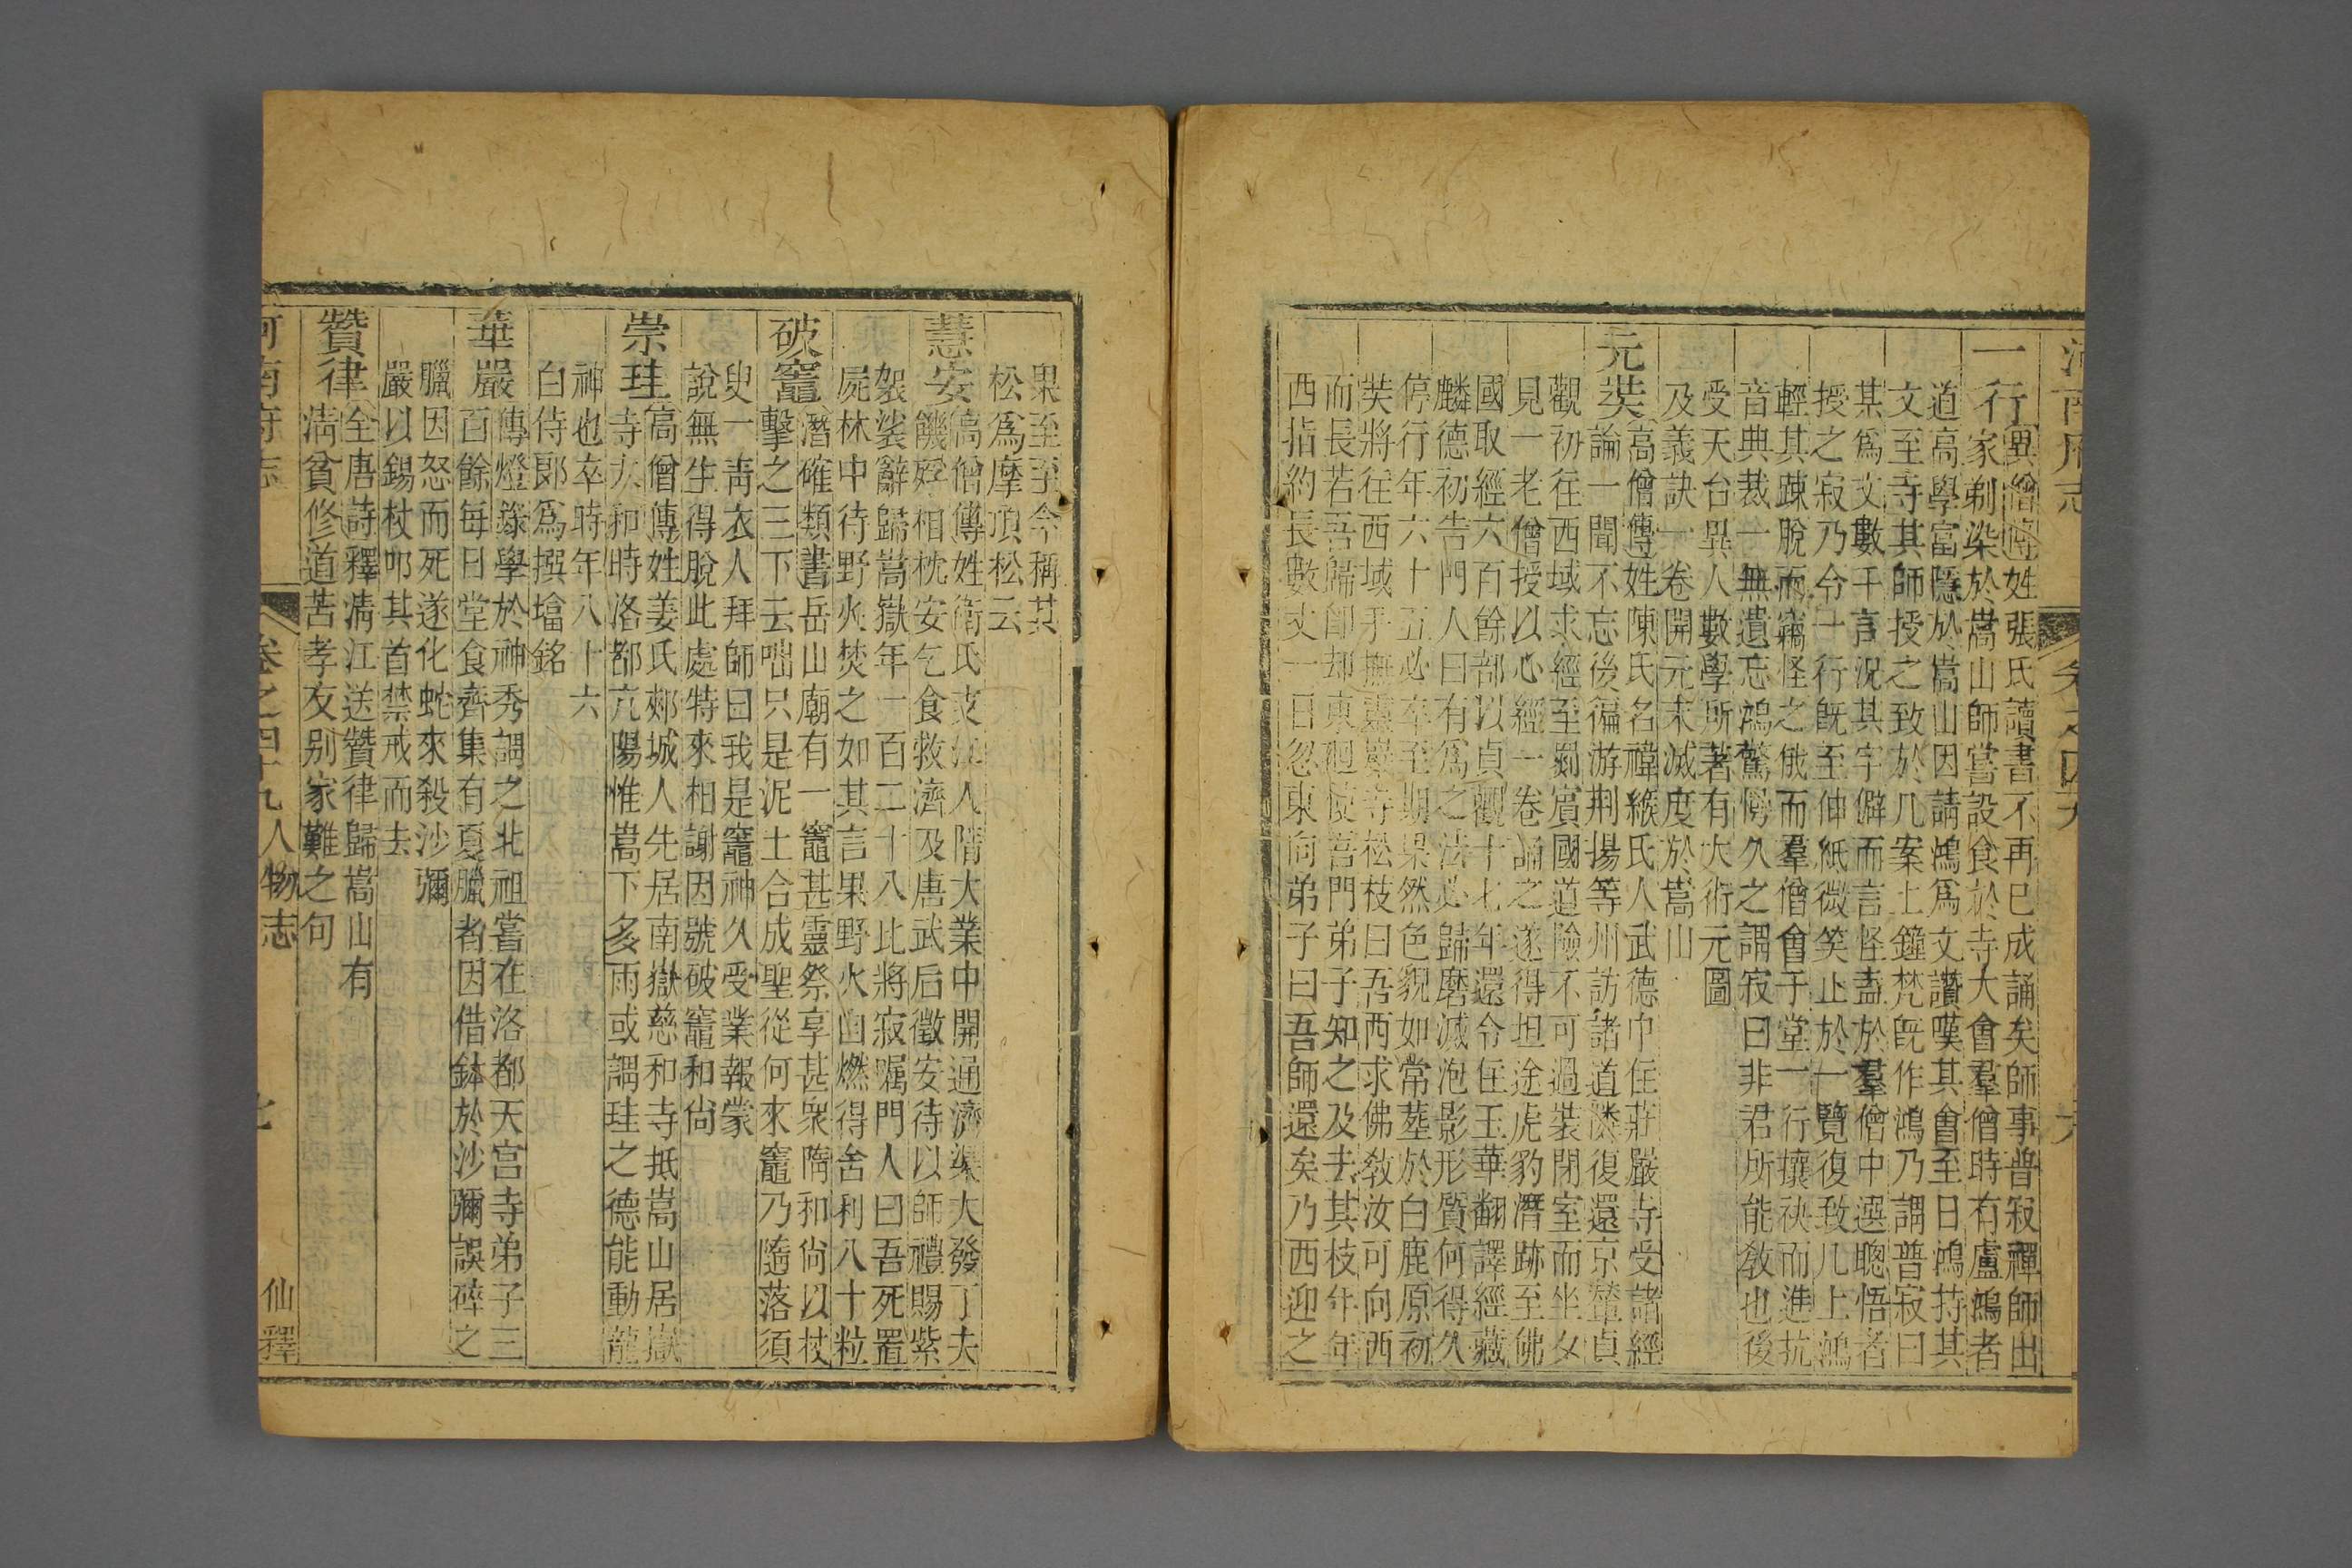 河南府志
卷之四十九
六
一行
異僧傳姓張氏讀書不再已成誦矣師事普寂禪師出
家剃染於嵩山師嘗設食於寺大會羣僧時有盧鴻者
道高學富隱於嵩山因請鴻爲文讚嘆其會至日鴻持其
文至寺其師授之致於几案上鐘梵旣作鴻乃謂普寂曰
某爲文數千言況其字僻而言怪盍於羣僧中選聰悟者
授之寂乃令一行旣至伸紙微笑止於一覽復致几上鴻
輕其疎脫而竊怪之俄而羣僧會于堂一行攘袂而進抗
音典裁一無遺忘鴻驚愕久之謂寂曰非君所能敎也後
受天台異人數學所著有大術元圖
及義訣一卷開元末滅度於嵩山
元奘
高僧傳姓陳氏名褘緱氏人武德中住莊嚴寺受諸經
論一聞不忘後徧游荆揚等州訪諸道隣復還京輦貞
觀初往西域求經至罽賓國道險不可過裝閉室而坐夕
見一老僧授以心經一卷誦之遂得坦途虎豹潛跡至佛
國取經六百餘部以貞觀十七年還令住玉華翻譯經藏
麟德初告門人曰有爲之法必歸磨滅泡影形質何得久
停行年六十五必卒至期果然色貌如常塟於白鹿原初
奘將往西域手撫靈巖寺松枝曰吾西求佛敎汝可向西
而長若吾歸卽却東迴使吾門弟子知之及去其枝年年
西指約長數丈一日忽東向弟子曰吾師還矣乃西迎之
果至至今稱其
松爲摩頂松云
慧安
高僧傳姓衛氏支江人隋大業中開通濟渠大發丁夫
饑殍相枕安乞食救濟及唐武后徵安待以師禮賜紫
袈裟辭歸嵩嶽年一百二十八比將寂囑門人曰吾死置
屍林中待野火焚之如其言果野火自燃得舍利八十粒
破竈
潛確類書岳山廟有一竈甚靈祭享甚衆隋和尚以杖
擊之三下云咄只是泥土合成聖從何來竈乃隨落須
臾一靑衣人拜師曰我是竈神久受業報蒙
說無生得脫此處特來相謝因號破竈和尚
崇珪
高僧傳姓姜氏郟城人先居南嶽慈和寺抵嵩山居嶽
寺太和時洛都亢陽惟嵩下多雨或謂珪之德能動龍
神也卒時年八十六
白侍郎爲撰墖銘
華嚴
傳燈錄學於神秀謂之北祖嘗在洛都天宫寺弟子三
百餘每日堂食齊集有夏臘者因借鉢於沙彌誤碎之
臘因怒而死遂化蛇來殺沙彌
嚴以錫杖叩其首禁戒而去
贊律
全唐詩釋淸江送贊律歸嵩山有
淸貧修道苦孝友别家難之句
河南府志
卷之四十九人物志
七
仙釋